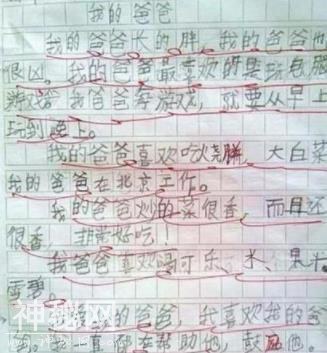 我的爸爸
我的爸爸长的胖。我的爸爸也
很凶。我的爸爸最喜欢的是玩电脑
游戏。我爸爸等游戏，就要从早上
玩到晚上。
我的爸爸喜欢吃火烧，大白菜
我的爸爸在北京工作。
我的爸爸炒的菜很香，而且还
很香，非常好吃！
我爸爸喜欢喝可乐、水、果
雪碧。
我的爸爸，我喜欢我的爸
爸，我一直都在帮助他，鼓励他。